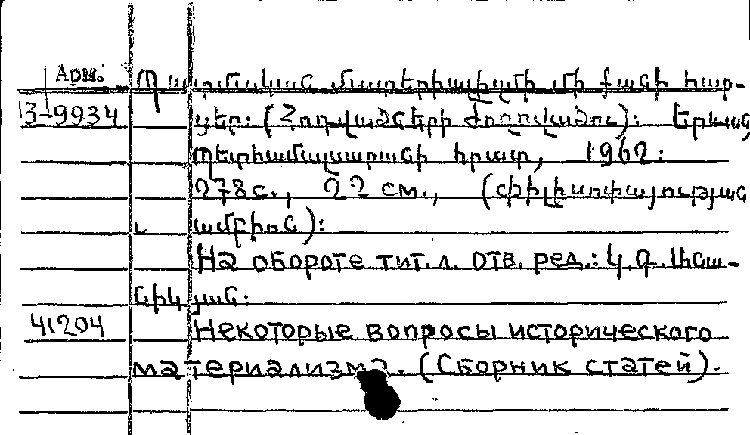 Арм.
Պատմական մատերիալիզմի մի քանի հար-
3-9934
ցեր։ (Հոդվածների ժողովածու)։ Երևան
Պետհամալսարանի հրատ, 1962։
278с., 22 см., (Փիլիսոփայության
ամբիոն)։
На обороте тит.л. отв. ред.:
նիկյան։
41204
Некоторые вопросы исторического
материализма. (Сборник статей).